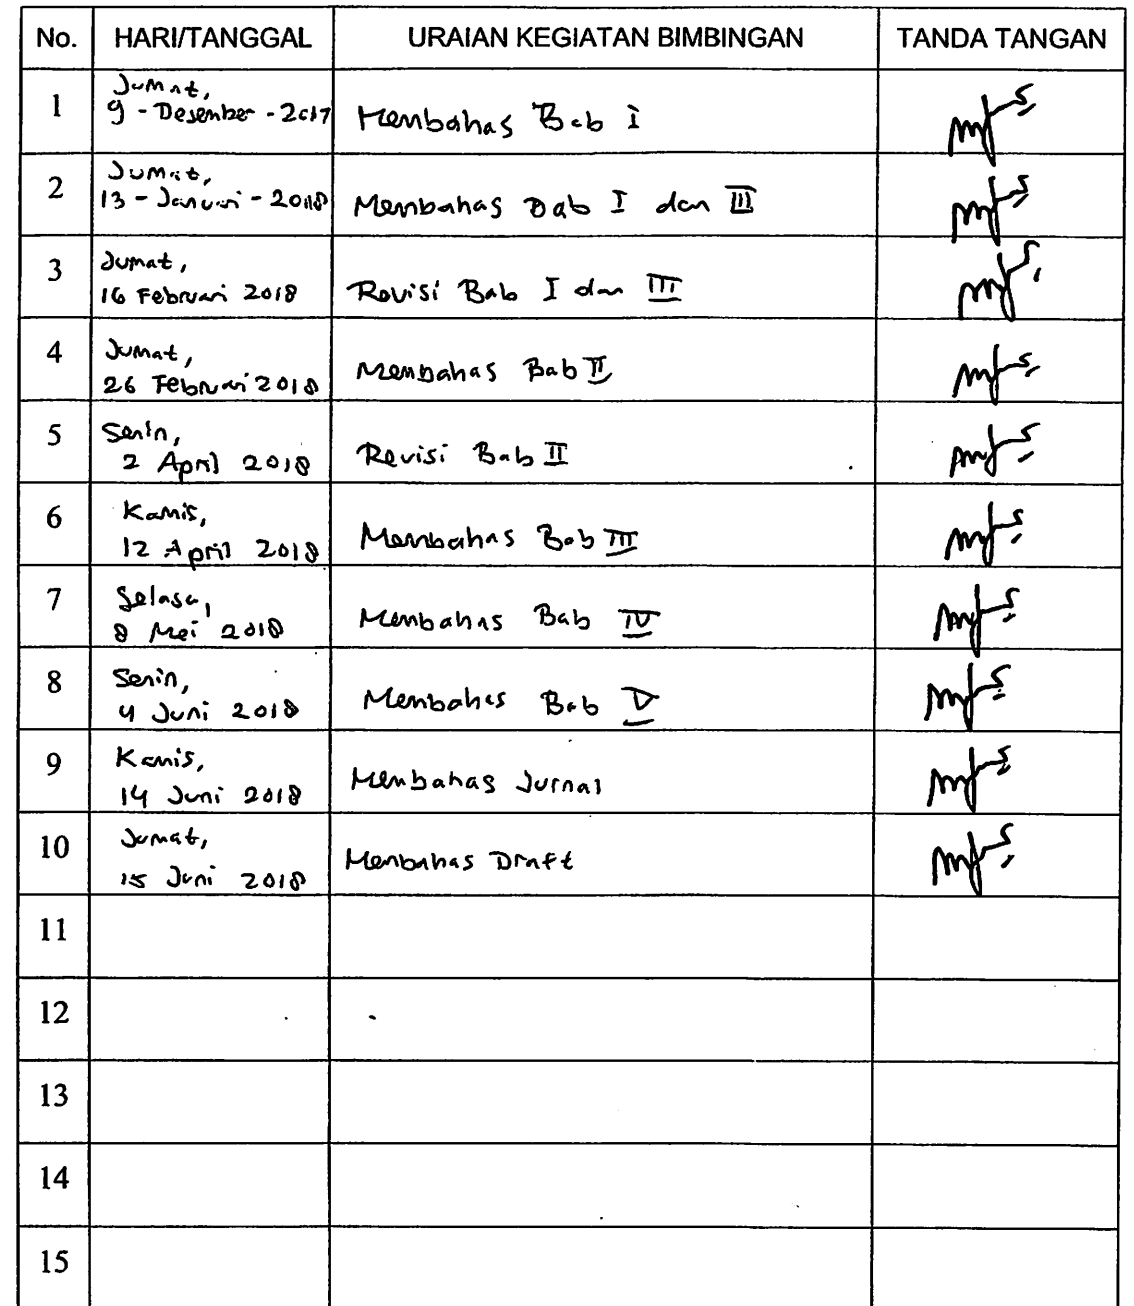 No. HARI/TANGGAL URAIAN KEGIATAN BIMBINGAN TANDA TANGAN
1 Jumat,
9 - Desember - 2017 Membahas Bab I
2 Jumat,
13 - Januari - 2018 Membahas Bab I dan III
3 Jumat,
16 Februari 2018 Revisi Bab I dan III
4 Jumat,
26 Februari 2018 Membahas Bab II
5 Senin,
2 April 2018 Revisi Bab II
6 Kamis,
12 April 2018 Membahas Bab III
7 Selasa,
8 Mei 2018 Membahas Bab IV
8 Senin,
4 Juni 2018 Membahas Bab V
9 Kamis,
14 Juni 2018 Membahas Jurnal
10 Jumat,
15 Juni 2018 Membahas Draft
11
12
13
14
15